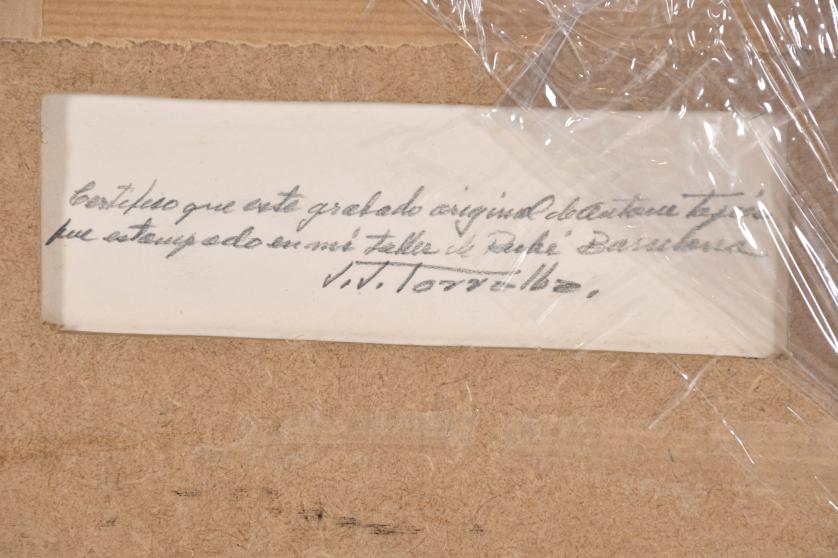 Certifico que este grabado original de Antoni Tapiés
fue estampado en mi taller de Rubí Barcelona
J.J. Torralba.